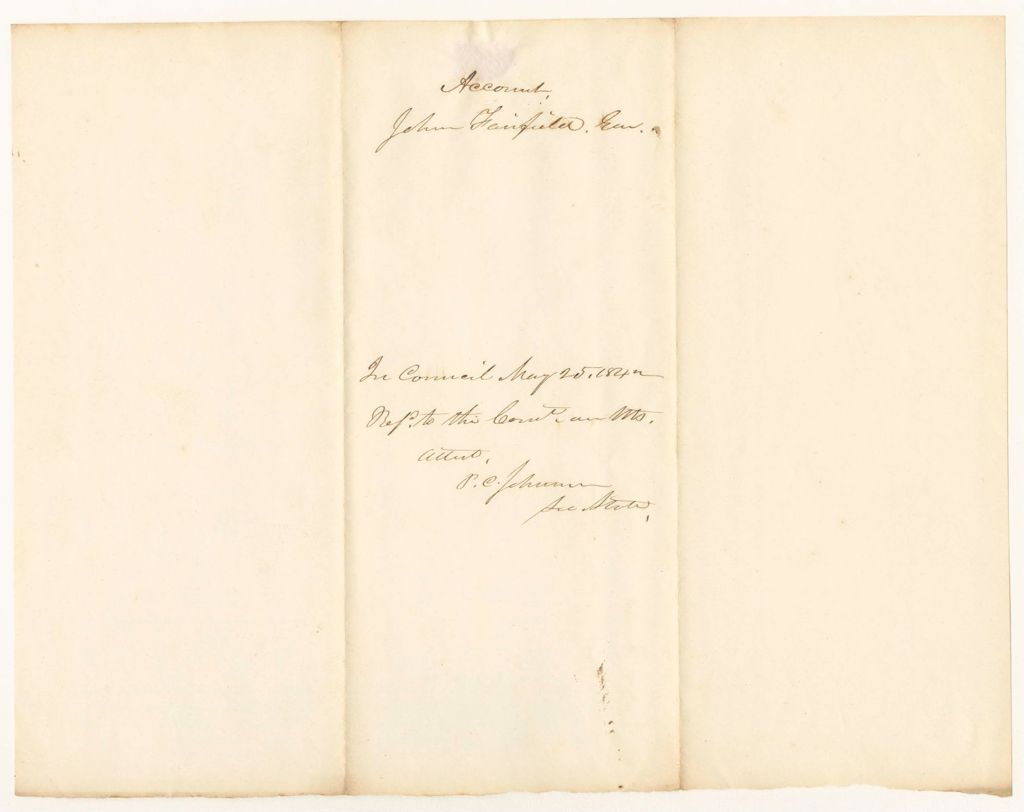 Account,
John Fairfield. Gov.
In Council May 25, 1842
Ref.d to the Com.e on Mo.
Attest,
P. C. Johnson
Sec State,